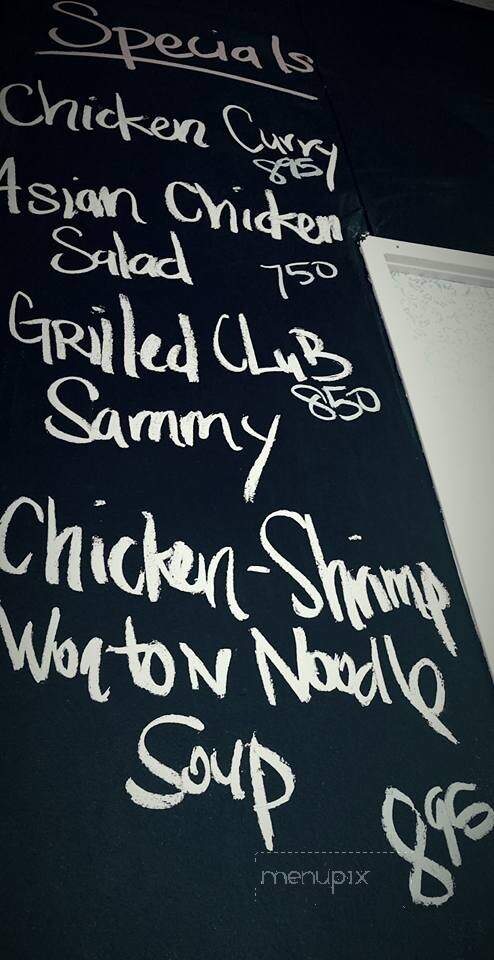 Specials
Chicken Curry
895
Asian Chicken
Salad 750
GRilled CLuB
850
Sammy
Chicken-Shrimp
WontoN Noodle
Soup
895
menupix